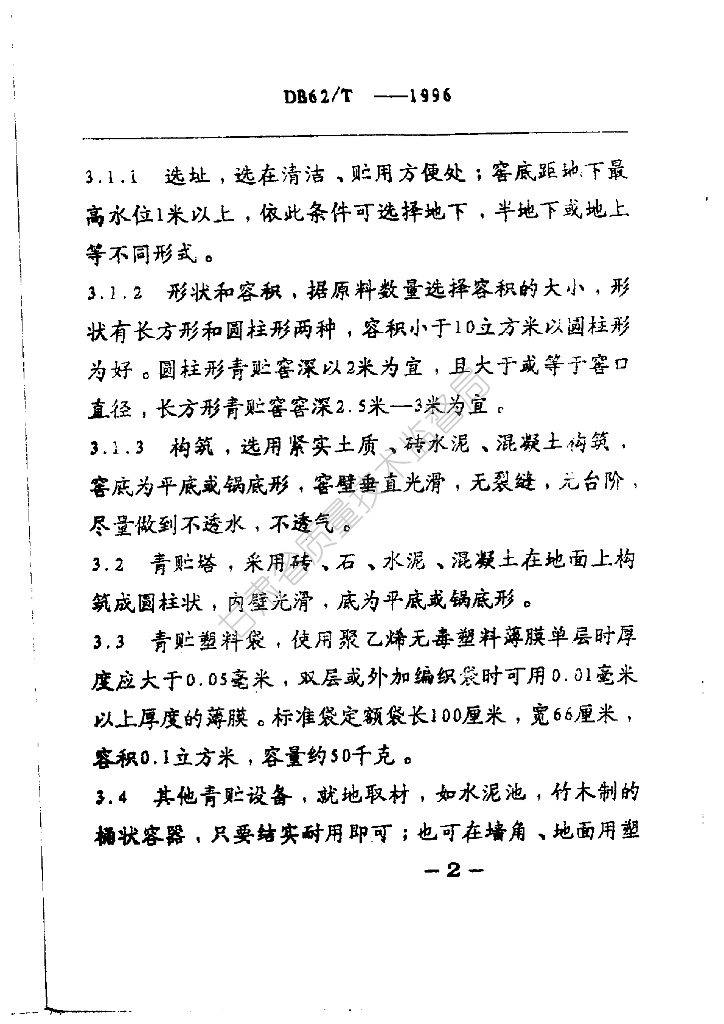 DB62/T ——1996
3.1.1 选址，选在清洁、贮用方便处；窖底距地下最
高水位1米以上，依此条件可选择地下，半地下或地上
等不同形式。
3.1.2 形状和容积，据原料数量选择容积的大小，形
状有长方形和圆柱形两种，容积小于10立方米以圆柱形
为好。圆柱形青贮窖深以2米为宜，且大于或等于窖口
直径，长方形青贮窖窖深2.5米—3米为宜。
3.1.3 构筑，选用紧实土质、砖水泥、混凝土构筑，
窖底为平底或锅底形，窖壁垂直光滑，无裂缝，无台阶，
尽量做到不透水，不透气。
3.2 青贮塔，采用砖、石、水泥、混凝土在地面上构
筑成圆柱状，内壁光滑，底为平底或锅底形。
3.3 青贮塑料袋，使用聚乙烯无毒塑料薄膜单层时厚
度应大于0.05毫米，双层或外加编织袋时可用0.01毫米
以上厚度的薄膜。标准袋定额袋长100厘米，宽66厘米，
容积0.1立方米，容量约50千克。
3.4 其他青贮设备，就地取材，如水泥池，竹木制的
桶状容器，只要结实耐用即可；也可在墙角、地面用塑
—2—
甘肃省质量技术监督局